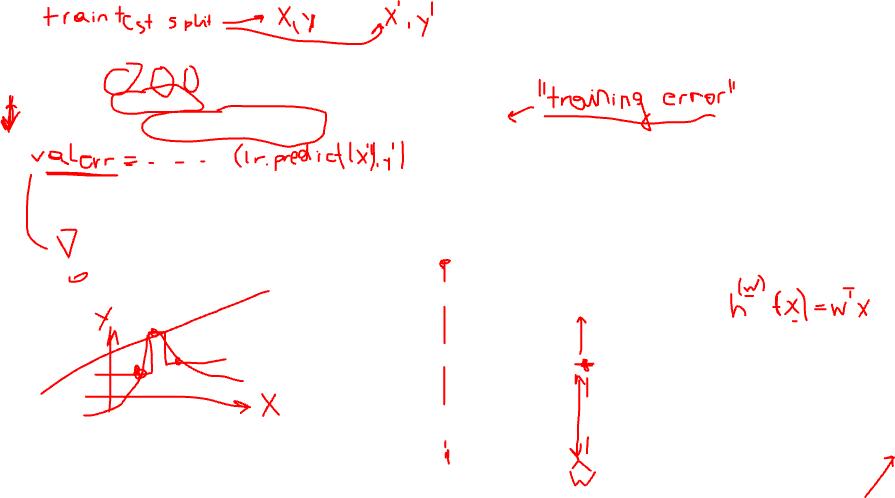 train test split → X, y X', y'
"training error"
val err = - - - - (lr.predict(X'), y')
h^(w)(x) = w^T x
y
X
w